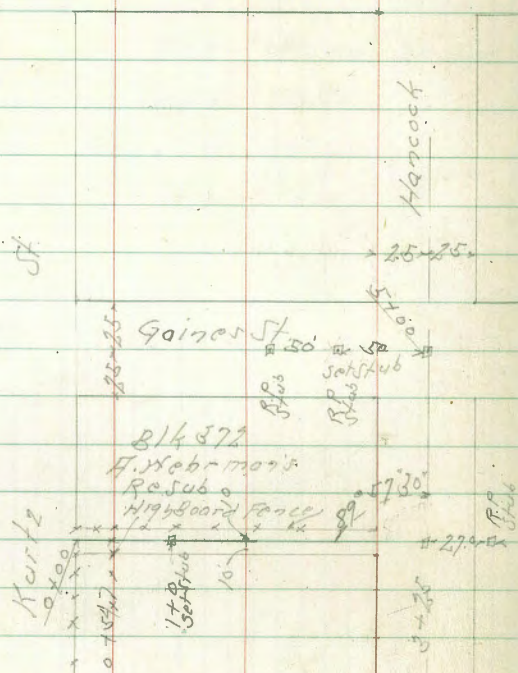 Hancock
St
25 25
5+00
Gaines St
50
50
25 25
R.P. Stub
R.P. Stub
set stub
Blk 372
A. Wehrman's
Resub
High Board Fence
89° 57' 30"
R.P. Stub
27.
Kurtz
0+00
0+54.7
1+0
Set Stub
10'
3+25